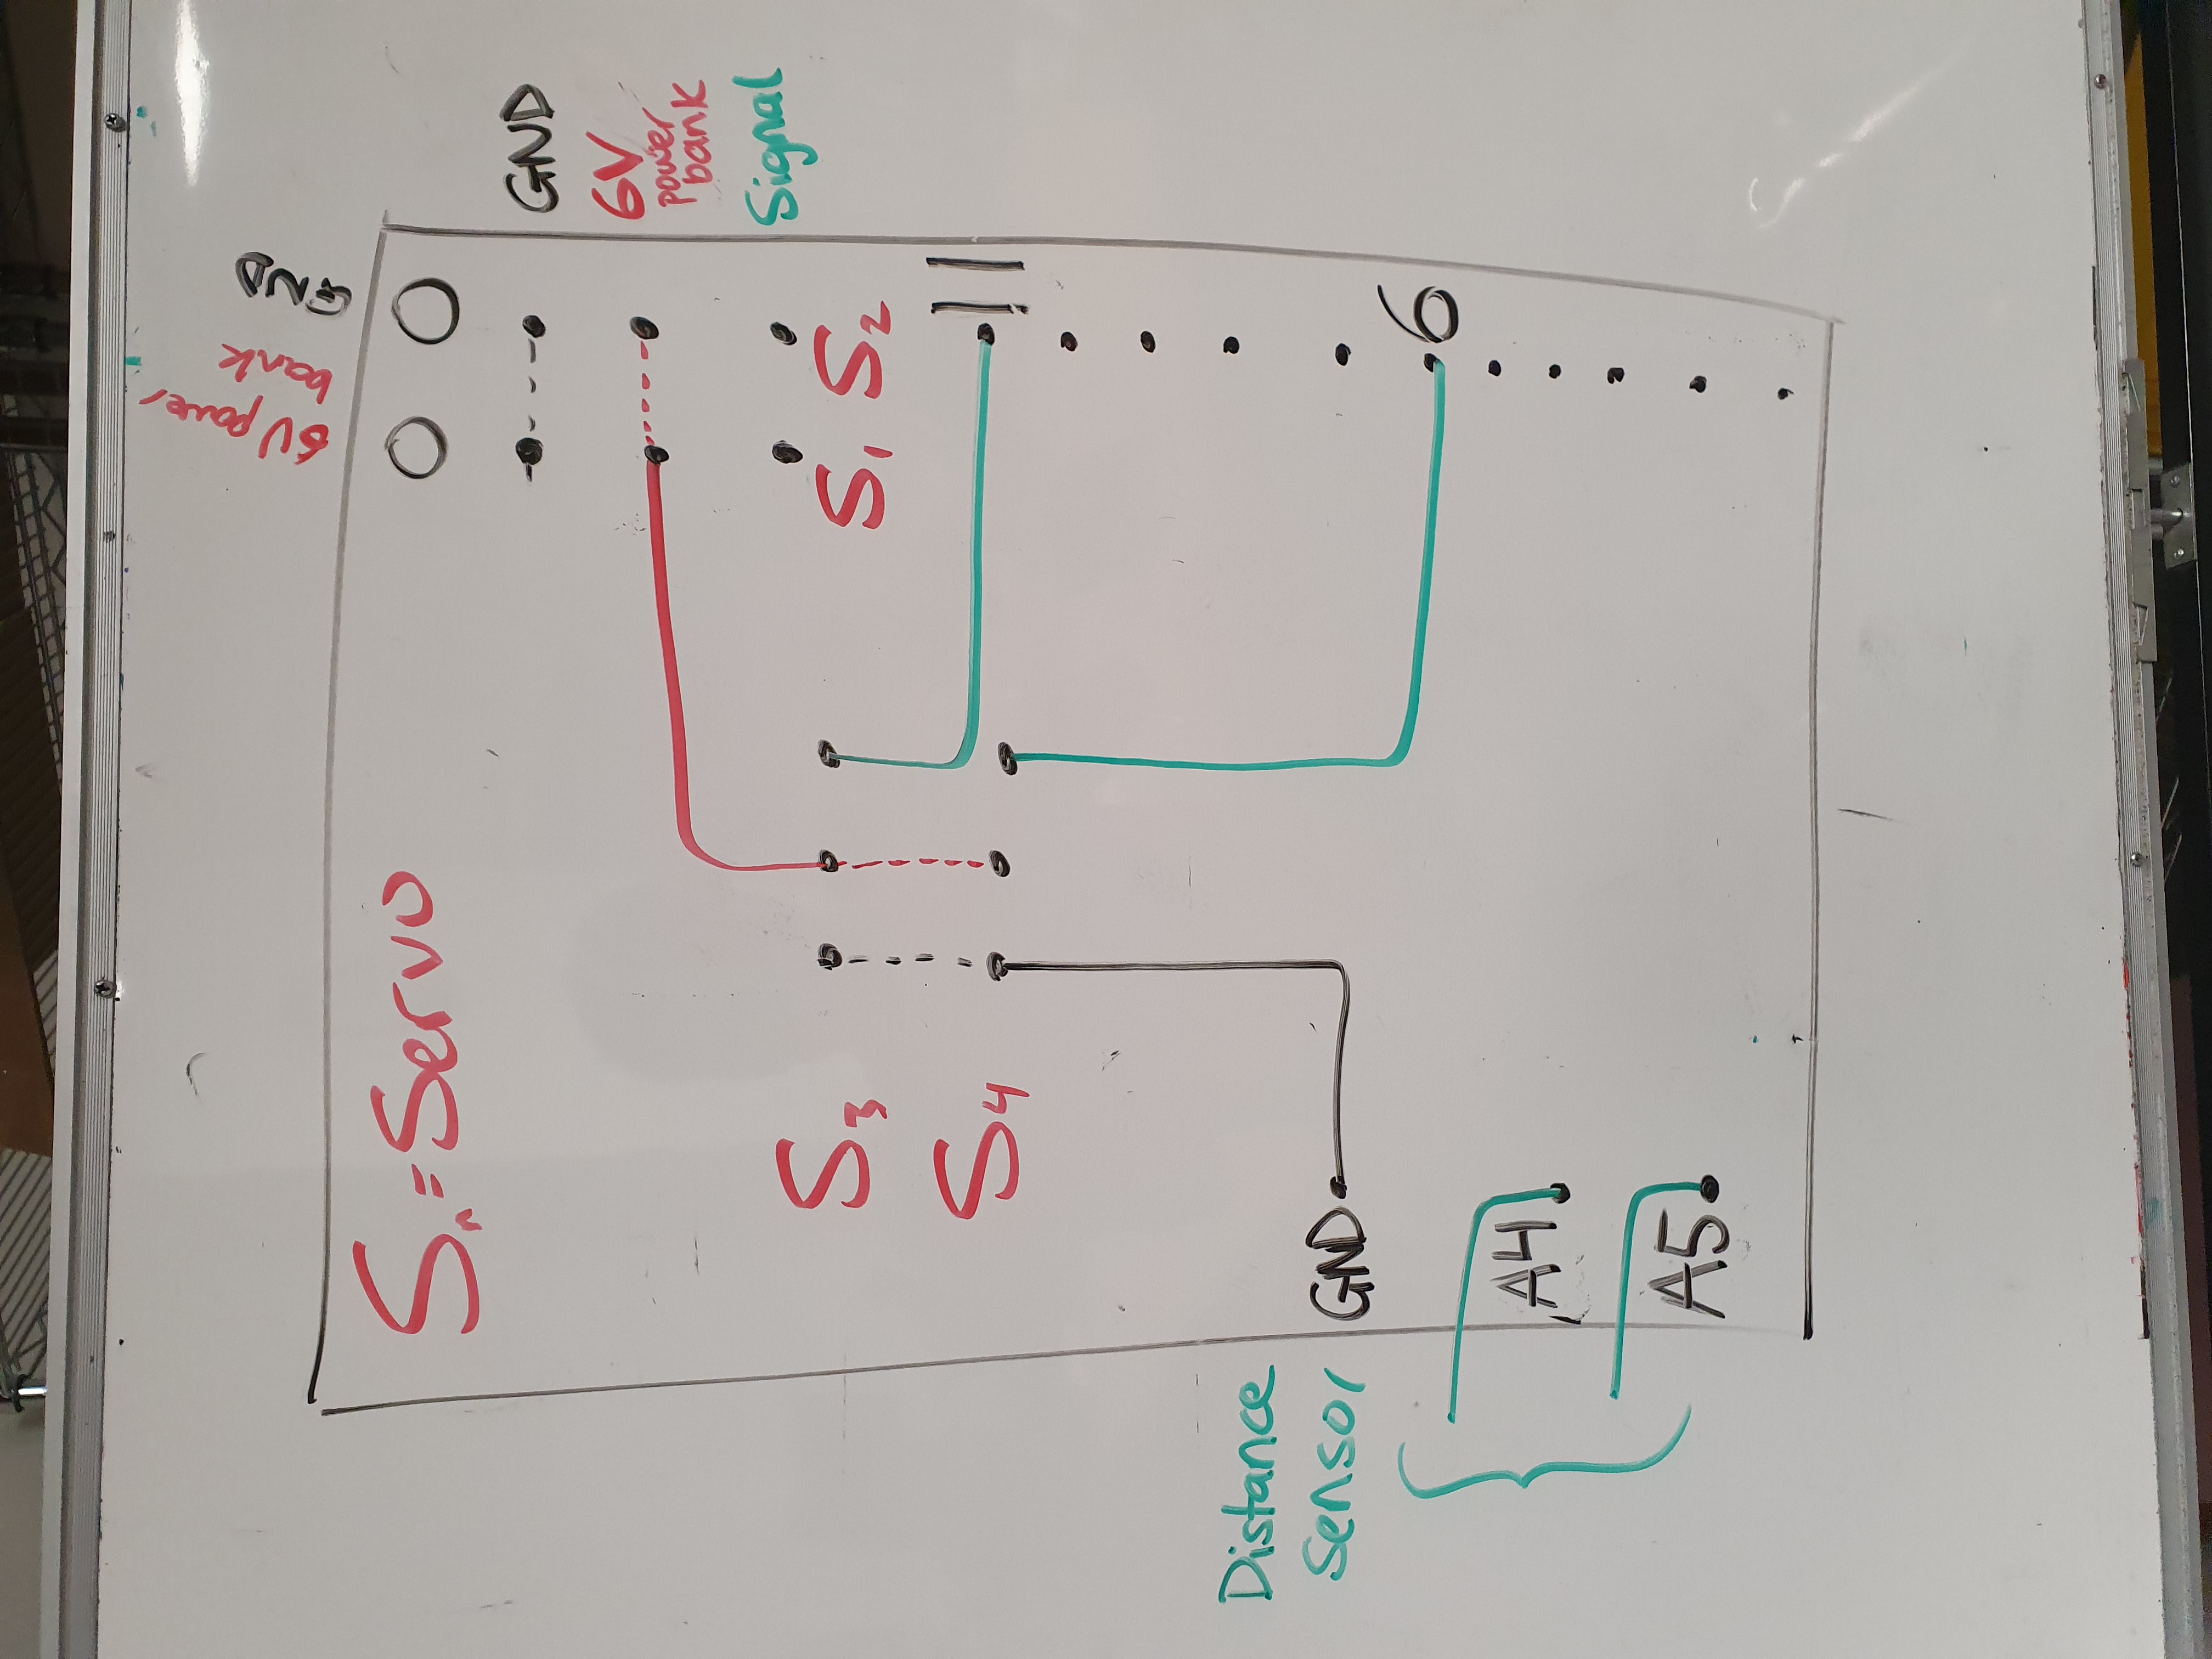 6V power
bank
GND
Sn = Servo
GND
6V
power
bank
Signal
S3
S1 S2
S4
11
Distance
sensor
GND
6
A4
A5